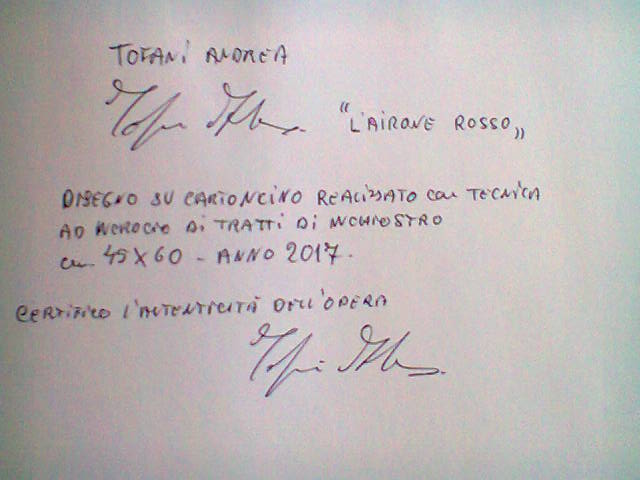 TOFANI ANDREA
"L'AIRONE ROSSO"
DISEGNO SU CARTONCINO REALIZZATO con TECNICA
AD INCROCIO DI TRATTI DI INCHIOSTRO
cm 45X60 - ANNO 2017.
CERTIFICO L'AUTENTICITÀ DELL'OPERA